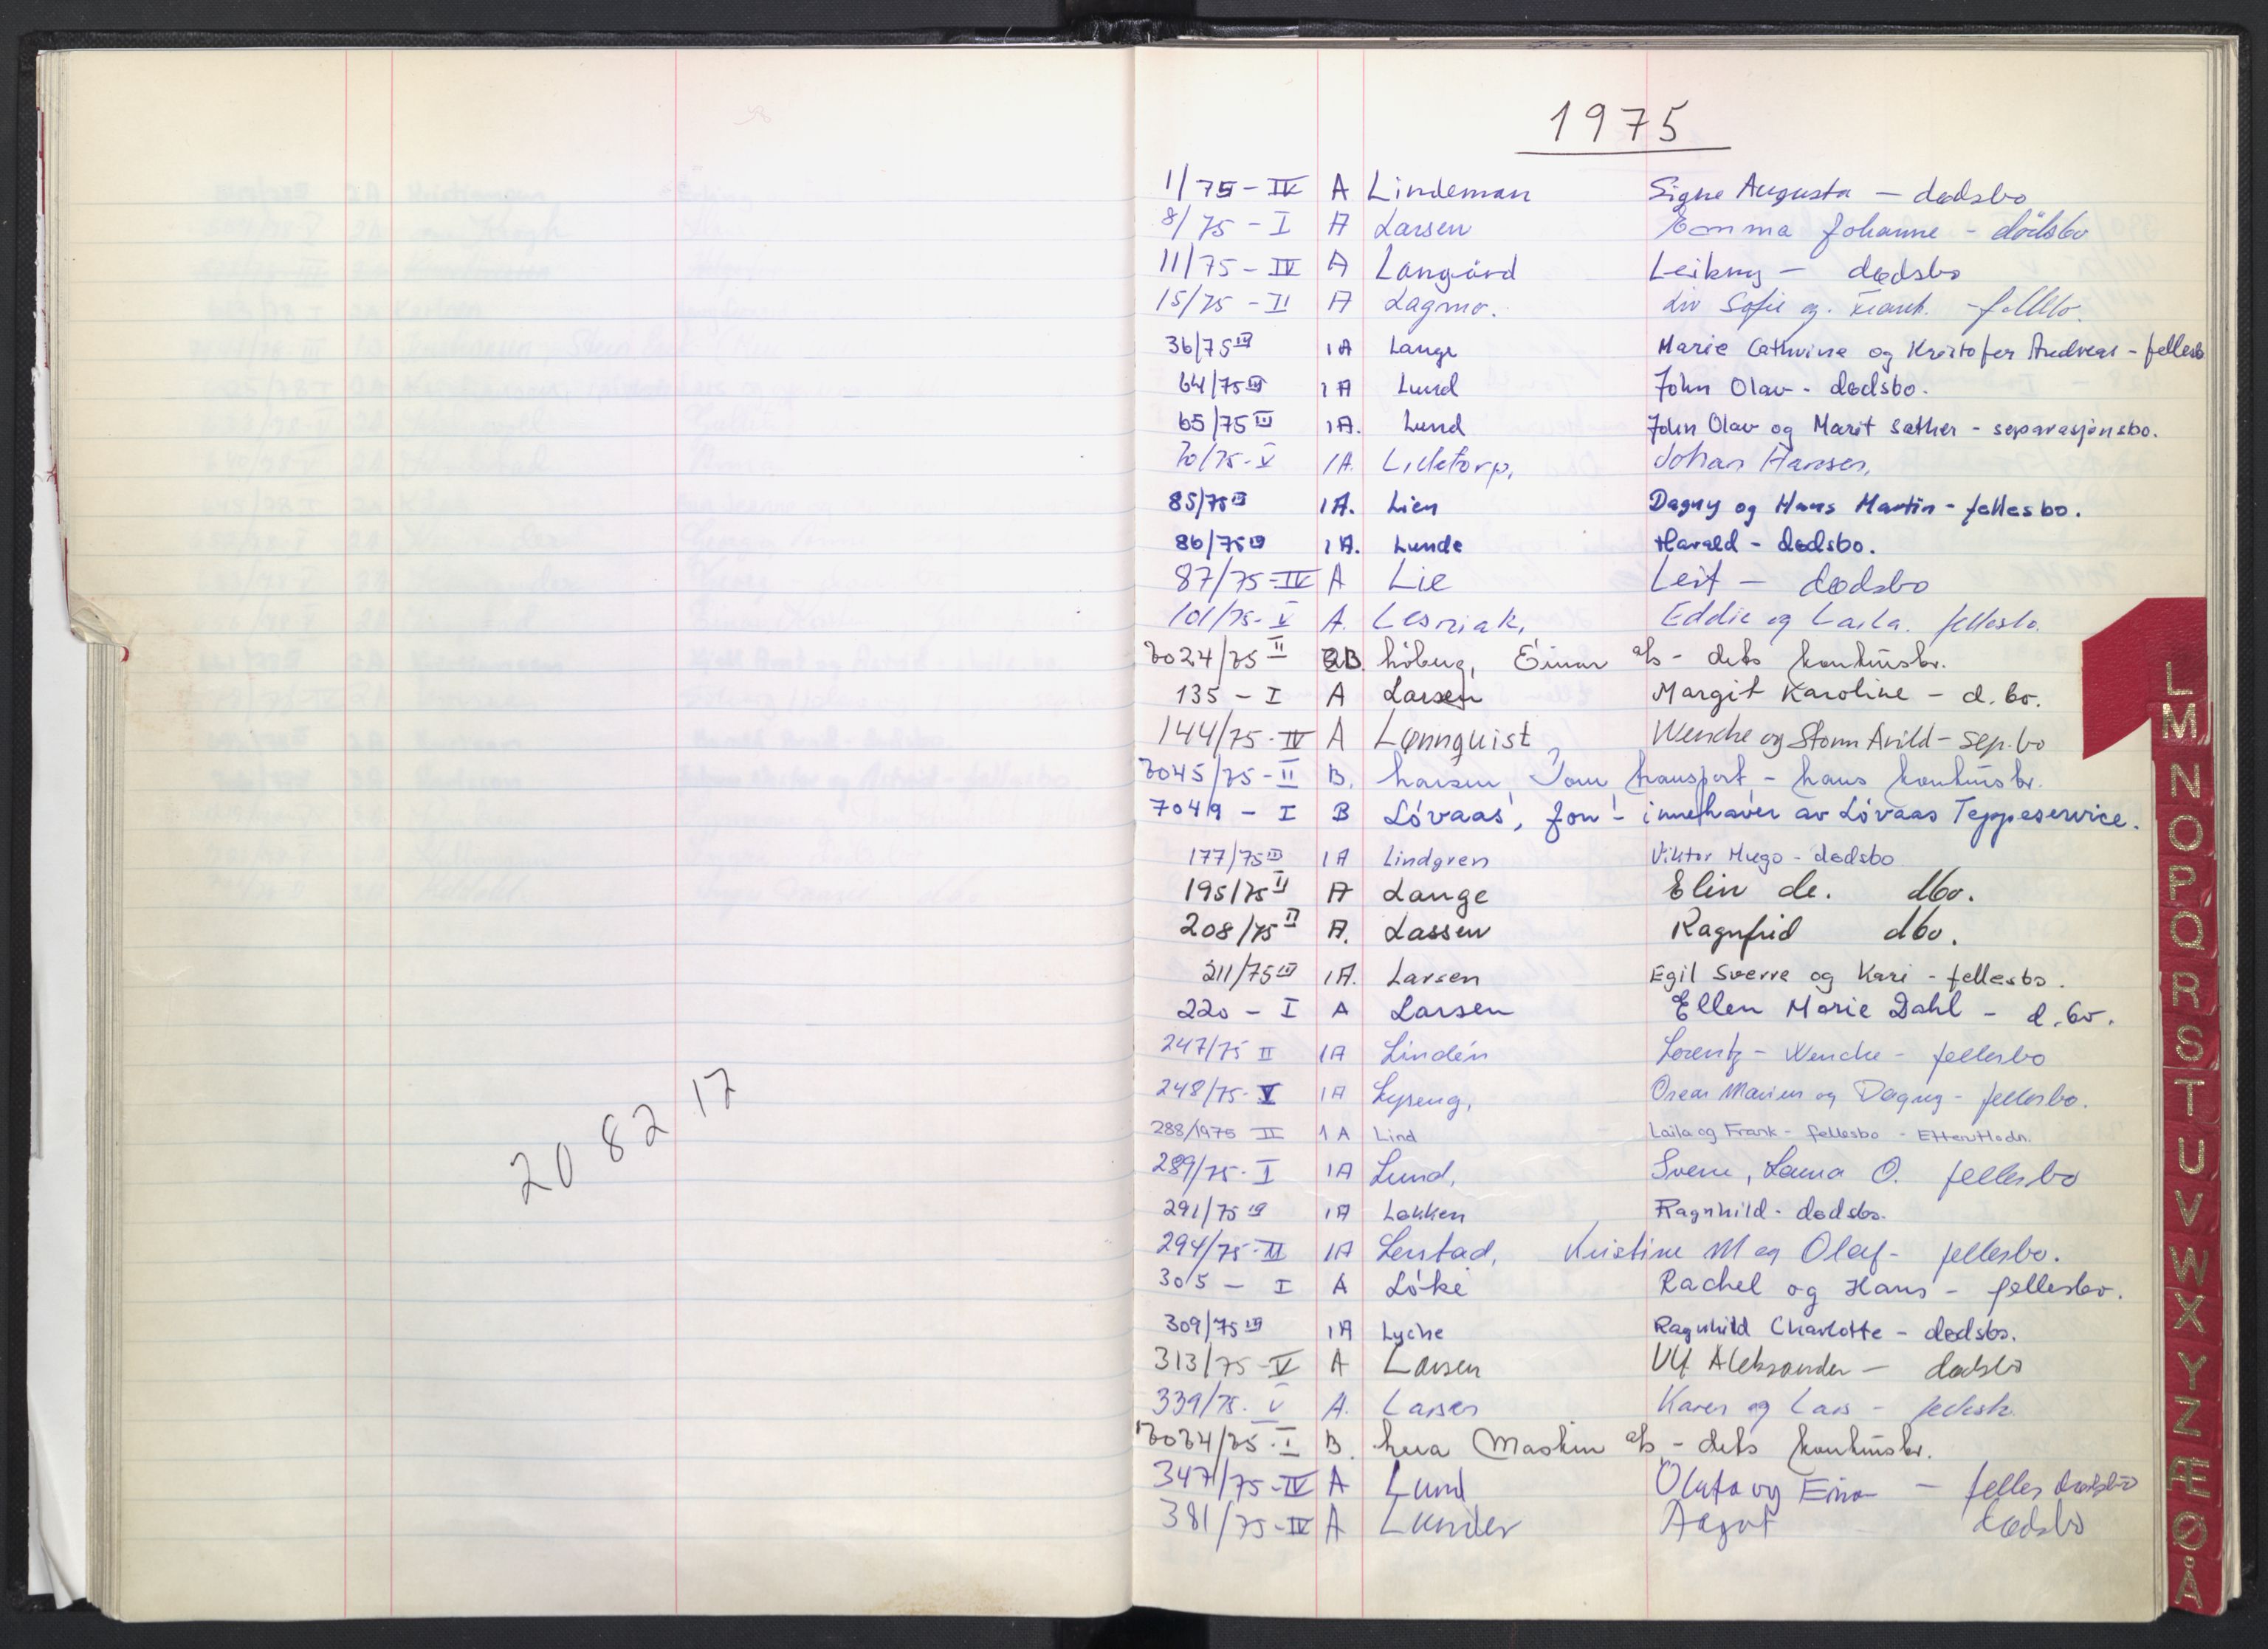 20 82 17
1975
1/75 - IV A Lindeman Signe Augusta - dødsbo
8/75 - I A Larsen Emma Johanne - dødsbo
11/75 - IV A Langård Leikny - dødsbo
15/75 - II A Lagmo. Liv Sofie og Frank. - fellsbo.
36/75 III 1A Lange Marie Cathrine og Kristofer Andreas - fellesb
64/75 III 1A Lund John Olav - dødsbo.
65/75 III 1A. Lund John Olav og Marit Sæther - separasjonsbo.
70/75 - V 1A. Lilletorp, Johan Hansen,
85/75 III 1A. Lien Dagny og Hans Martin - fellesbo.
86/75 III 1A. Lunde Harald - dødsbo.
87/75 - IV A Lie Leif - dødsbo
101/75 - V A. Lesniak, Eddie og Laila. fellesbo.
7024/75 II B. Löberg, Einar a/s - dets konkursbo.
135 - I A Larsen Margit Karoline - d.bo.
144/75 - IV A Lønnquist Wenche og Storm Arild - sep.bo
7045/75 - II B. Larsen, Tom transport - hans konkursbo.
7049 - I B Lövaas, Jon - innehaver av Lövaas Teppeservice.
177/75 III 1A Lindgren Viktor Hugo - dødsbo
195/75 II A Lange Elin de. dbo.
208/75 II A. Lassen Ragnfrid dbo.
211/75 III 1A. Larsen Egil Sverre og Kari - fellesbo.
220 - I A Larsen Ellen Marie Dahl - d.bo.
247/75 II 1A Lindén Lorentz - Wenche - fellesbo
248/75 - V 1A Lyseng, Oscar Marius og Dagny - fellesbo.
288/1975 II 1A Lind Laila og Frank - fellesbo -
289/75 - I 1A Lund, Sverre, Laura O. fellesbo
291/75 III 1A Løkken Ragnhild - dødsbo.
294/75 - II 1A Lerstad, Kristine M og Olaf - fellesbo.
305 - I A Löke Rachel og Hans - fellesbo.
309/75 III 1A Lyche Ragnhild Charlotte - dødsbo.
313/75 - V A Larsen Ulf Aleksander - dødsbo
339/75 - V A. Larsen Karen og Lars - fellesb.
7034/75 - I B. Maskin a/s - dets konkursbo.
347/75 - IV A Lund Olufa og Einar - felles dødsbo
381/75 - IV A Lunder Aagot dødsbo
L
M
N
O
P
Q
R
S
T
U
V
W
X
Y
Z
Æ
Ø
Å